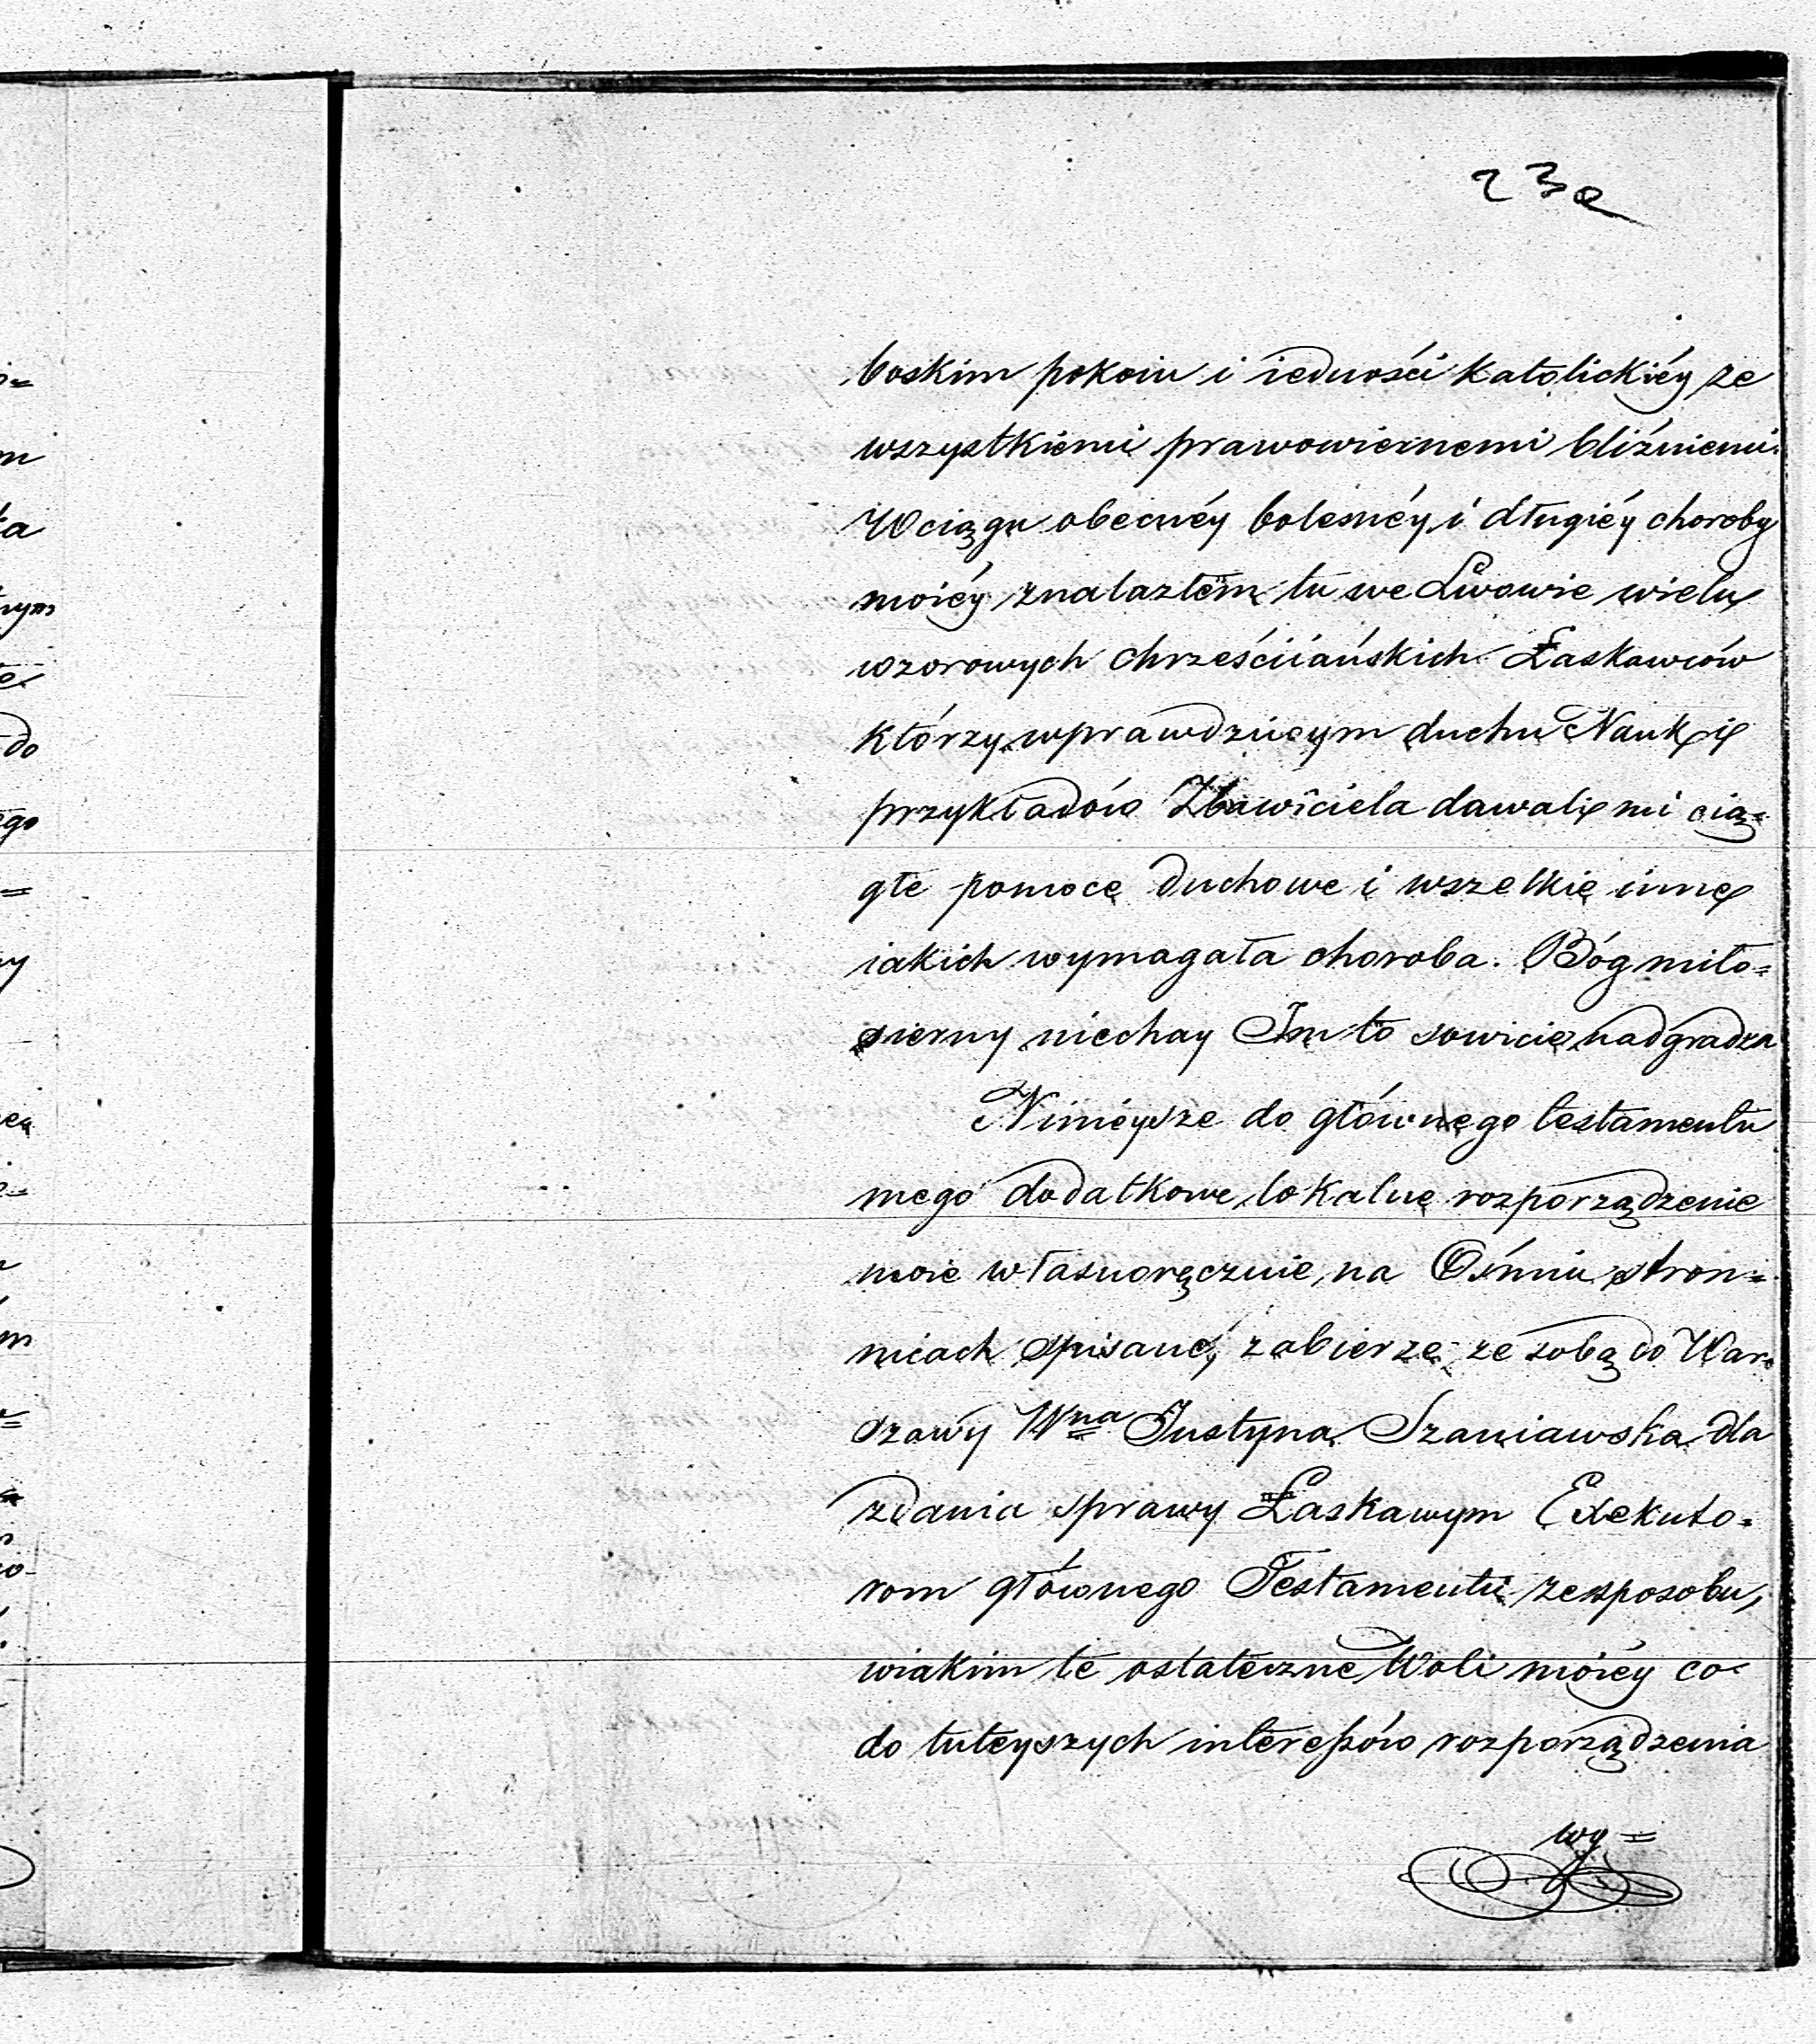 230
boskim pokoiu i iedności katolickiéy ze
wszystkiemi prawowiernemi bliźniemi.
W ciągu obecnéy bolesnéy i długiéy choroby
moiéy znalazłem tu we Lwowie wielu
wzorowych chrześciiańskich Łaskawców
którzy w prawdziwym duchu Nauk i
przykładów Zbawiciela dawali mi cią=
głe pomoce duchowe i wszelkie inne
iakich wymagała choroba. Bóg miło=
sierny niechay Im to sowicie nadgradza
Ninieysze do głównego testamentu
mego dodatkowe lokalne rozporządzenie
moie własnoręcznie na Ośmiu stron=
nicach spisane, zabierze ze sobą do War=
szawy Wna Justyna Szaniawska dla
zdania sprawy Łaskawym Exekuto=
rom głównego Testamentu ze sposobu,
w iakim te ostateczne Woli moiéy co
do tuteyszych interessów rozporządzenia
wy=